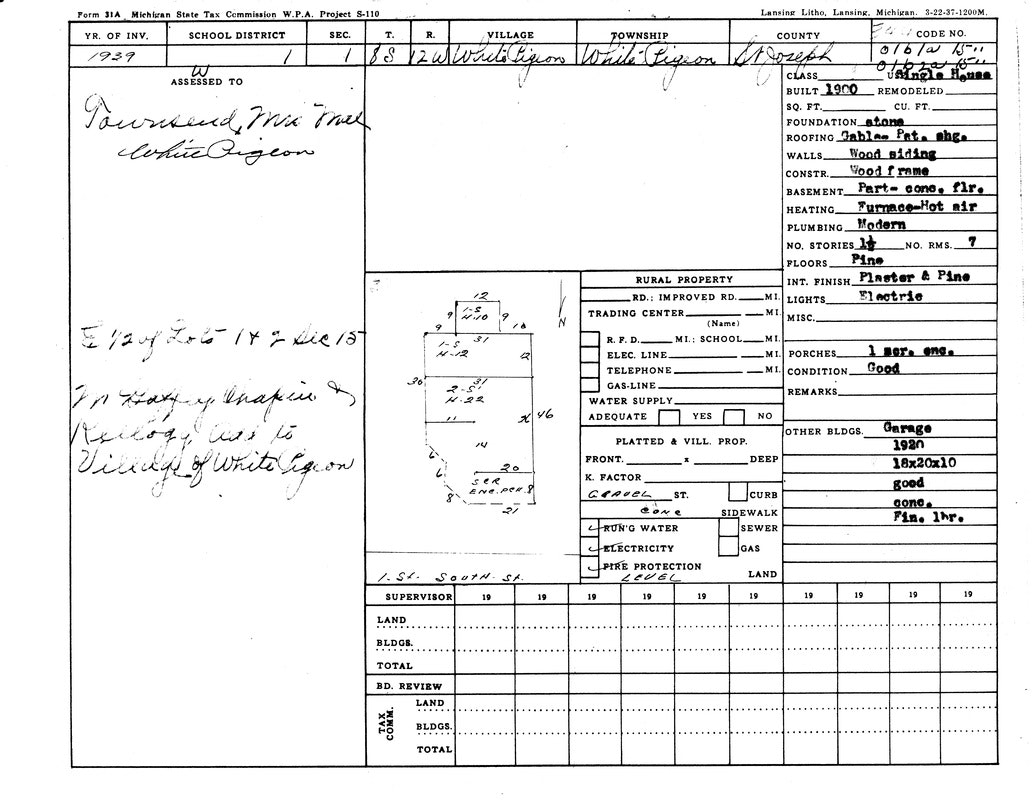 Form 31A Michigan State Tax Commission W.P.A. Project S-110
Lansing Litho, Lansing, Michigan. 3-22-37-1200M.
YR. OF INV. SCHOOL DISTRICT SEC. T. R. VILLAGE TOWNSHIP COUNTY CODE NO.
1939 1 1 8S 12W White Pigeon White Pigeon St Joseph
W
ASSESSED TO
Townsend, Mrs
White Pigeon
E 1/2 of Lots 1 & 2 Sec 15
Chapin &
Kellogg Add to
Village of White Pigeon
CLASS Single House
BUILT 1900 REMODELED
SQ. FT. CU. FT.
FOUNDATION stone
ROOFING Gable- Pat. shg.
WALLS Wood siding
CONSTR. Wood frame
BASEMENT Part- conc. flr.
HEATING Furnace-Hot air
PLUMBING Modern
NO. STORIES 1½ NO. RMS. 7
FLOORS Pine
INT. FINISH Plaster & Pine
LIGHTS Electric
MISC.
PORCHES 1 scr. enc.
CONDITION Good
REMARKS
OTHER BLDGS. Garage
1920
18x20x10
good
conc.
Fin. lbr.
12
9 1-S H-10 9
9 31 10
1-S
H-12 12
36 31
2-S
H-22
46
11
14
6
6
20
SCR
ENC. PCH. 8
8
21
N
1. St. SOUTH. St.
RURAL PROPERTY
RD.: IMPROVED RD. MI.
TRADING CENTER MI.
(Name)
R. F. D. MI.: SCHOOL MI.
ELEC. LINE MI.
TELEPHONE MI.
GAS-LINE
WATER SUPPLY
ADEQUATE YES NO
PLATTED & VILL. PROP.
FRONT. x DEEP
K. FACTOR
GRAVEL ST. CURB
CONC SIDEWALK
RUN'G WATER SEWER
ELECTRICITY GAS
FIRE PROTECTION
LEVEL LAND
SUPERVISOR 19 19 19 19 19 19 19 19 19
LAND
BLDGS.
TOTAL
BD. REVIEW
TAX COMM.
LAND
BLDGS.
TOTAL